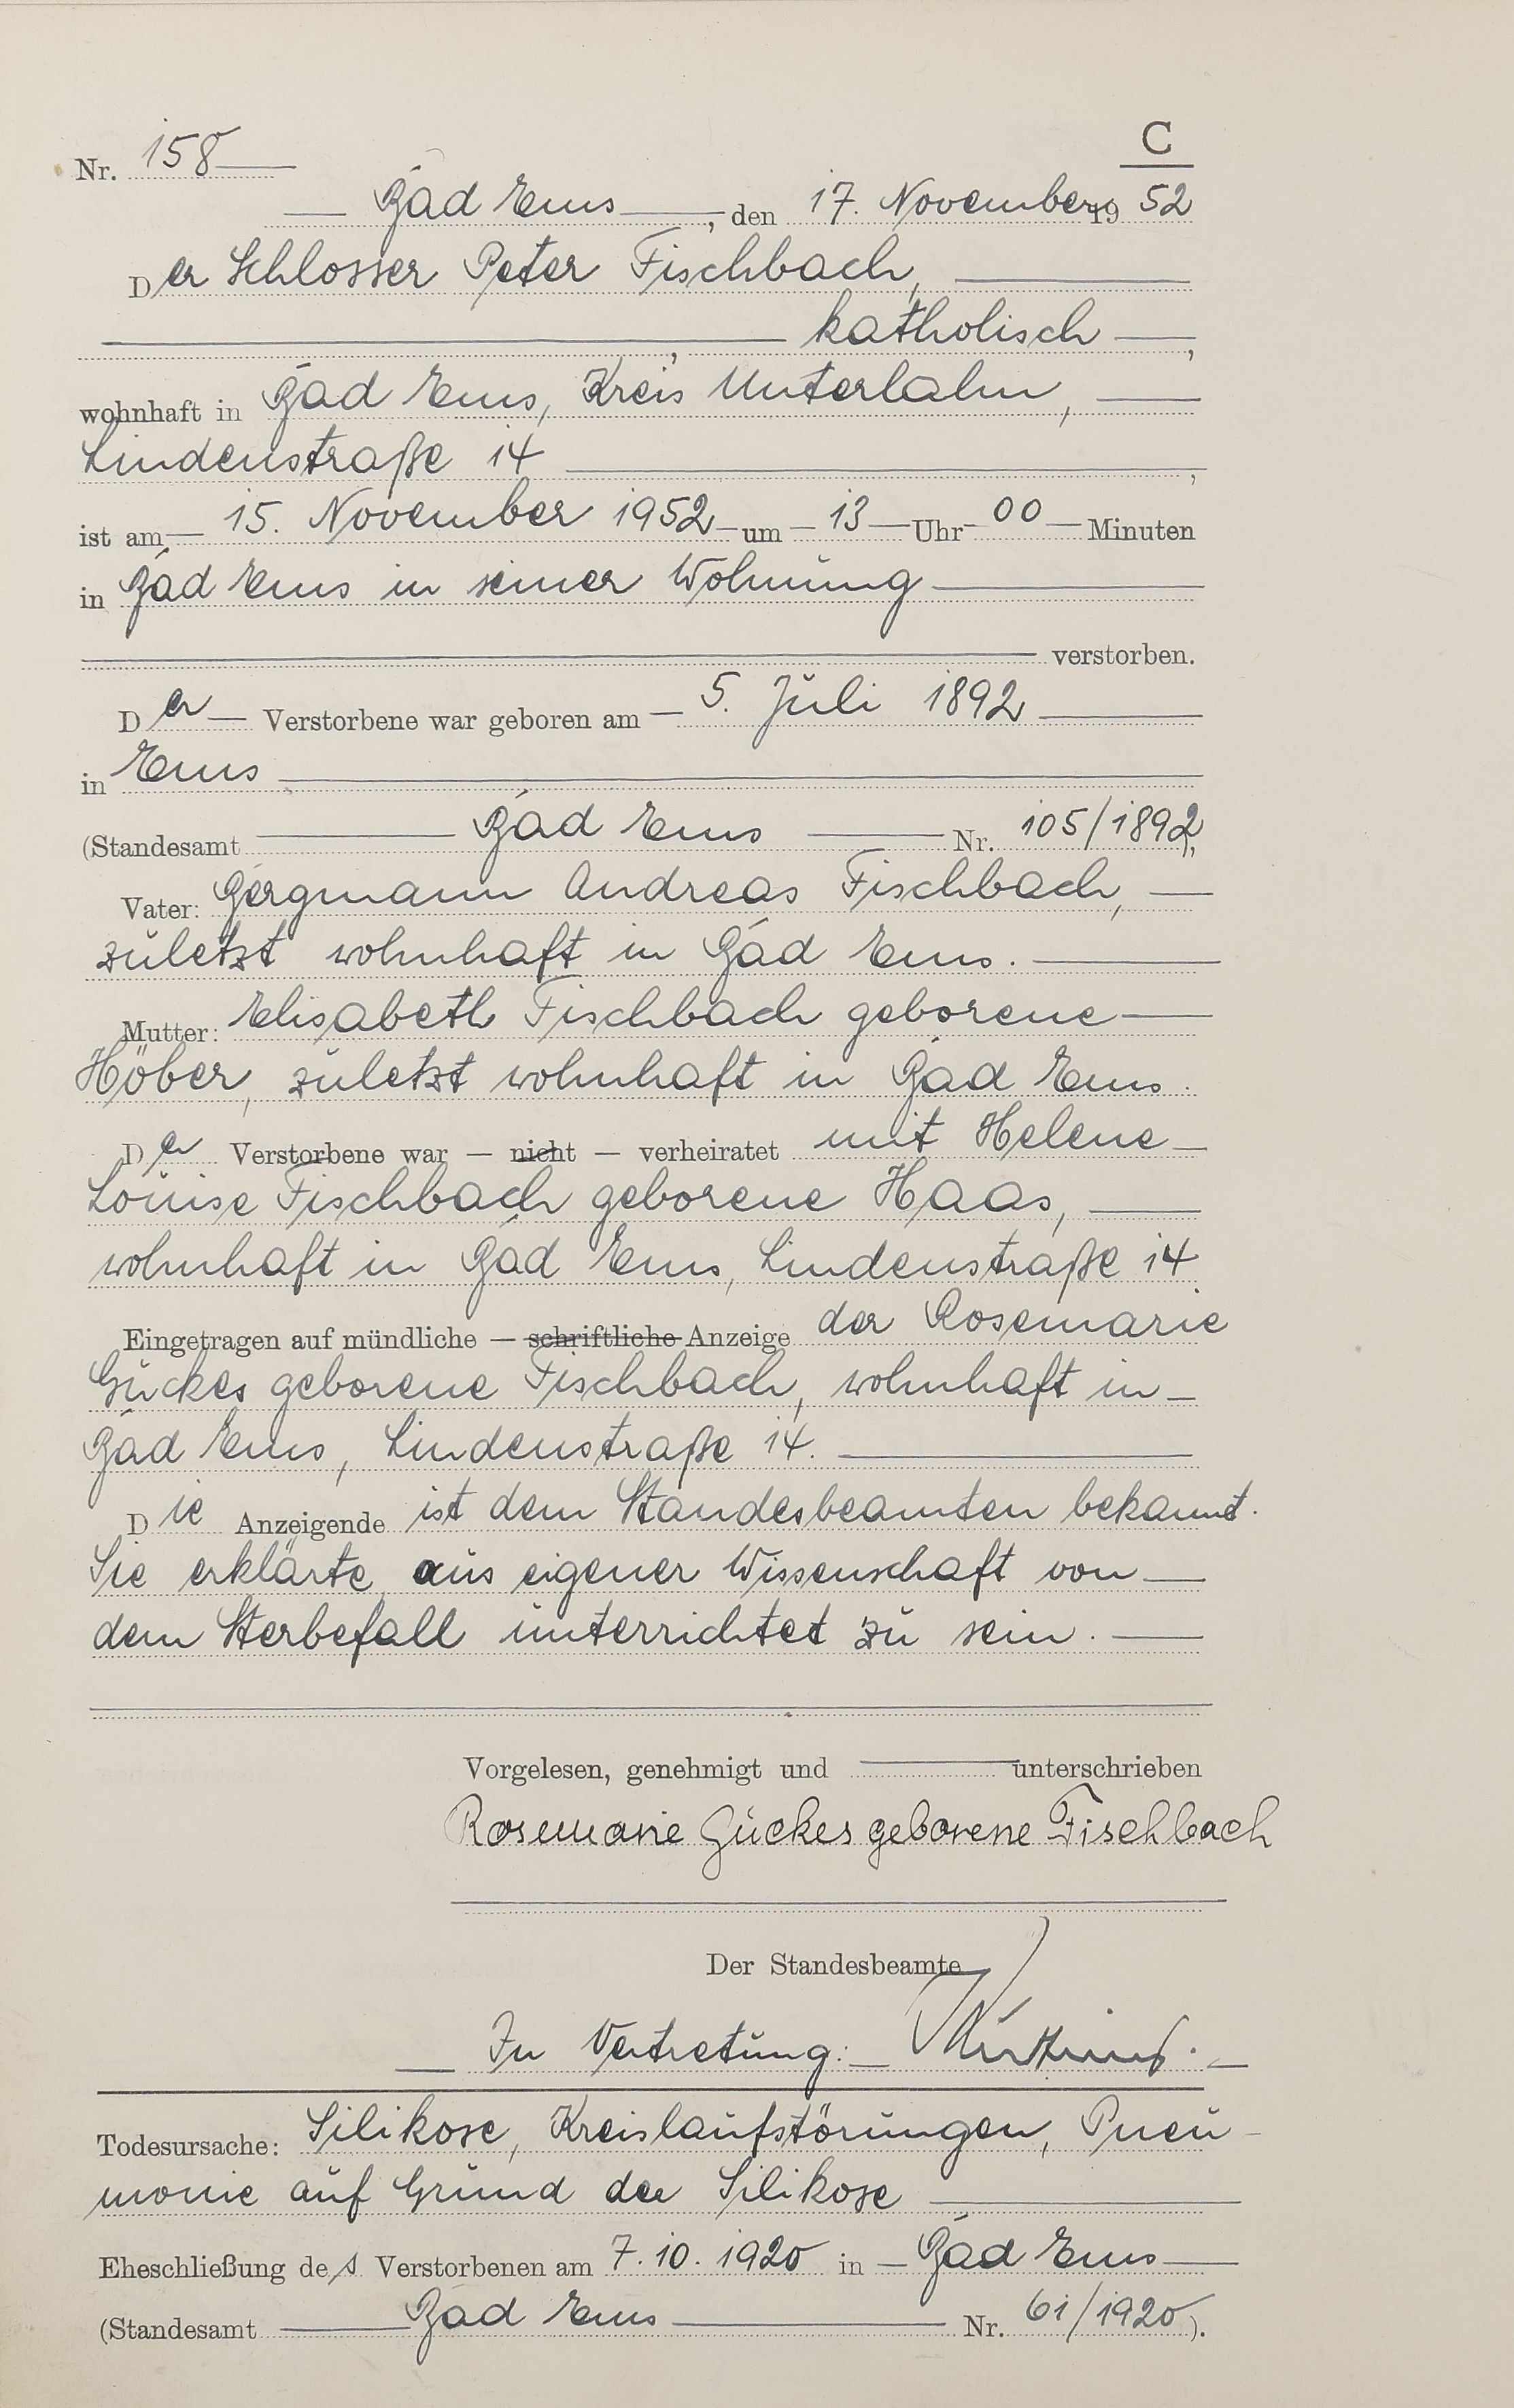 C
Nr. 158
Bad Ems, den 17. November 1952
Der Schlosser Peter Fischbach,
, katholisch ,
wohnhaft in Bad Ems, Kreis Unterlahn,
Lindenstraße 14 ,
ist am 15. November 1952 um 13 Uhr 00 Minuten
in Bad Ems in seiner Wohnung
verstorben.
Der Verstorbene war geboren am 5. Juli 1892
in Ems
(Standesamt Bad Ems Nr. 105/1892),
Vater: Bergmann Andreas Fischbach,
zuletzt wohnhaft in Bad Ems.
Mutter: Elisabeth Fischbach geborene
Höber, zuletzt wohnhaft in Bad Ems.
Der Verstorbene war — nicht — verheiratet mit Helene
Louise Fischbach geborene Haas,
wohnhaft in Bad Ems, Lindenstraße 14.
Eingetragen auf mündliche — schriftliche Anzeige der Rosemarie
Gückes geborene Fischbach, wohnhaft in
Bad Ems, Lindenstraße 14.
Die Anzeigende ist dem Standesbeamten bekannt.
Sie erklärte aus eigener Wissenschaft von
dem Sterbefall unterrichtet zu sein.
Vorgelesen, genehmigt und unterschrieben
Rosemarie Gückes geborene Fischbach
Der Standesbeamte
In Vertretung:
Todesursache: Silikose, Kreislaufstörungen, Pneu-
monie auf Grund der Silikose
Eheschließung des Verstorbenen am 7.10.1920 in Bad Ems
(Standesamt Bad Ems Nr. 61/1920).